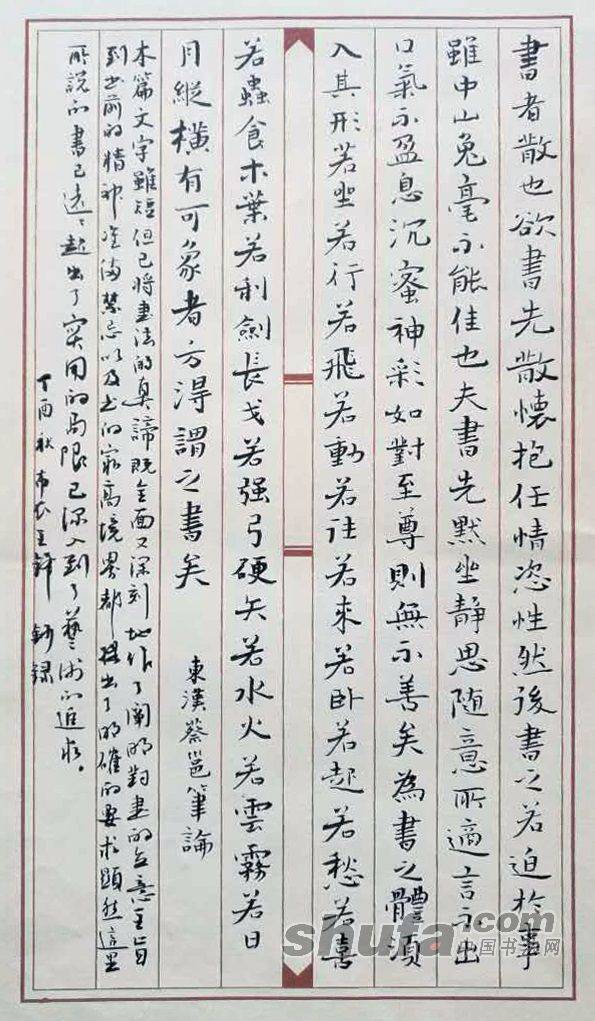 書者散也欲書先散懷抱任情恣性然後書之若迫於事
雖中山兔毫不能佳也夫書先默坐静思随意所適言不出
口氣不盈息沉蜜神彩如對至尊則無不善矣為書之體須
入其形若坐若行若飛若動若往若來若卧若起若愁若喜
若蟲食木葉若利劍長戈若强弓硬矢若水火若雲霧若日
月縱横有可象者方得謂之書矣
東漢蔡邕筆論
本篇文字雖短但已将書法的真諦既全面又深刻地作了闡明對書的立意主旨
到书前的精神准備禁忌以及书的最高境界都提出了明確的要求顯然這里
所說的書已遠遠超出了实用的局限已深入到了藝术的追求。
丁酉秋
鈔録
shufa.com
中国书法网